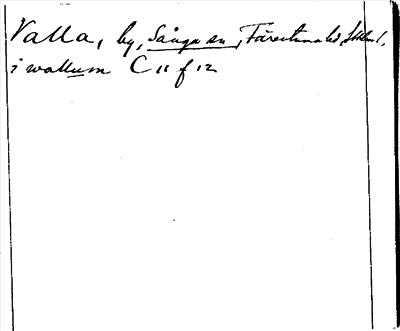 Valla, by, Sånga sn, Färentuna hd, Sthlm l,
i wallum C 11 f 12